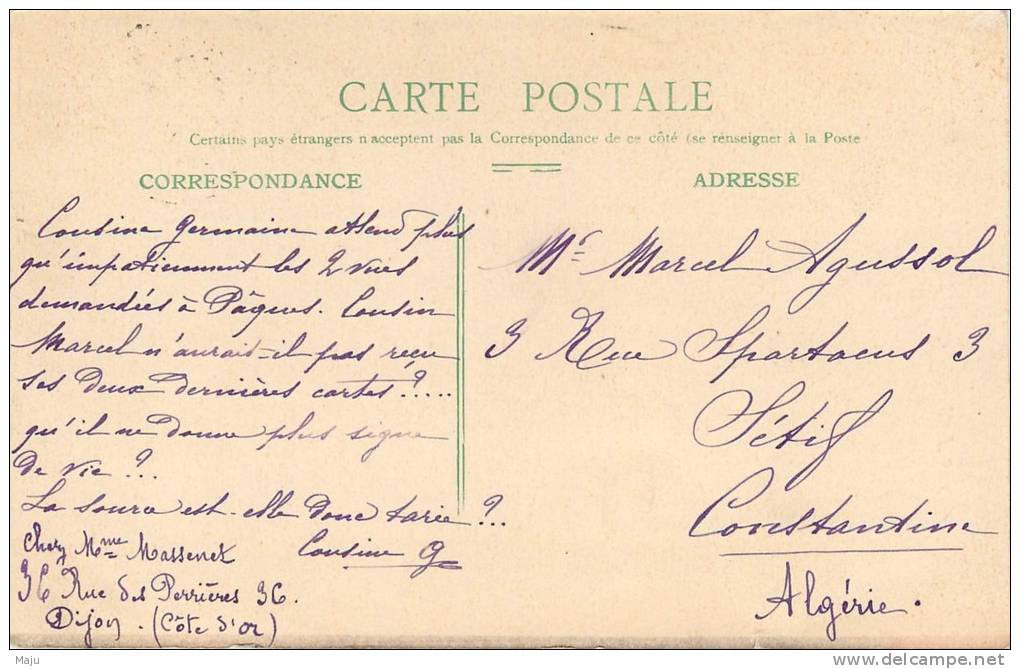 CARTE POSTALE
Certains pays étrangers n'acceptent pas la Correspondance de ce côté (se renseigner à la Poste
CORRESPONDANCE
Cousine Germaine attend plus
qu'impatiemment les 2 vues
demandées à Pâques. Cousin
Marcel n'aurait-il pas reçu
ses deux dernières cartes ?.....
qu'il ne donne plus signe
de vie ?..
La source est-elle donc tarie ?..
Cousine G
Chez Mme Massenet
36 Rue des Perrières 36.
Dijon. (Côte d'Or)
ADRESSE
Mr Marcel Agussol
3 Rue Spartacus 3
Sétif
Constantine
Algérie.
Maju
www.delcampe.net